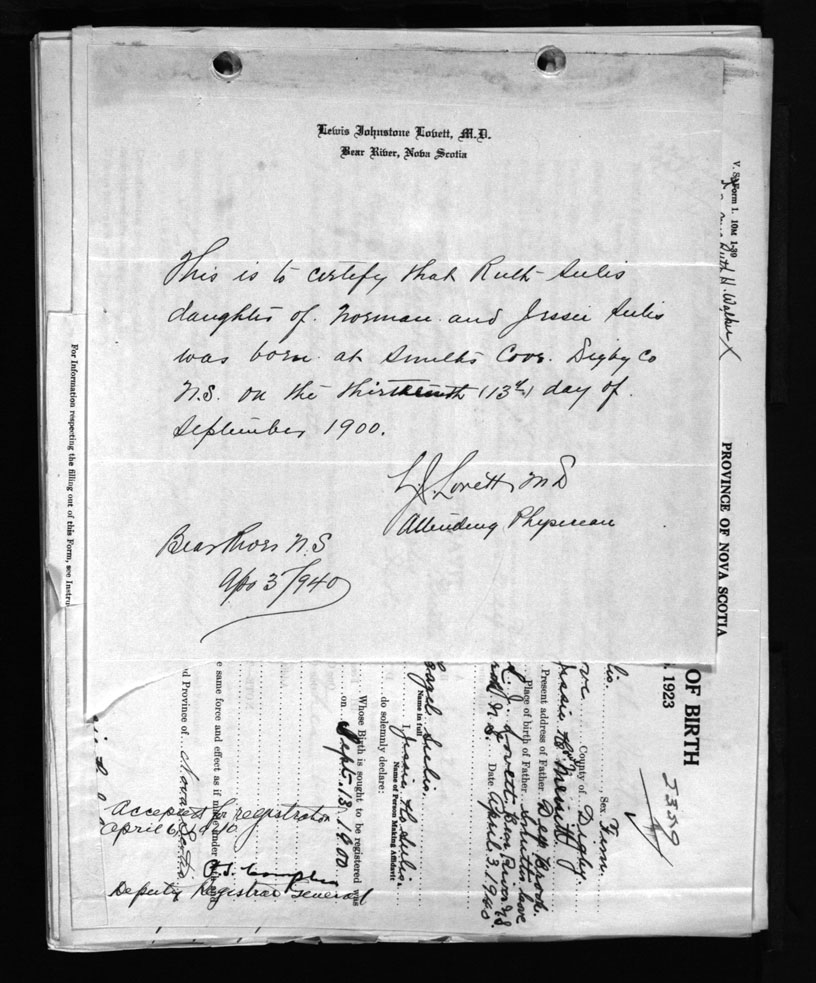 Lewis Johnstone Lovett, M.D.
Bear River, Nova Scotia
This is to certify that Ruth Sulis
daughter of Norman and Jessie Sulis
was born at Smiths Cove Digby Co
N.S. on the thirteenth (13th) day of
September 1900.
L.J. Lovett MD
Attending Physician
Bear River N.S
Apr 3rd/940
V. S. Form 1. 10M 1-39
Ruth H. Walker X
PROVINCE OF NOVA SCOTIA
For Information respecting the filling out of this Form, see Instru
OF BIRTH
1923
2359
lis. Sex Fem.
ve County of Digby.
Jessie Merritt
Present address of Father Deep Brook
Place of birth of Father Smiths Cove
L. J. Lovett Bear River N.S
N.S. Date April 3. 1940.
Hazel Sulis.
Name in full
I, Jessie Sulis.
Name of Person Making Affidavit
do solemnly declare:
Whose Birth is sought to be registered was
on Sept. 13. 1900
e same force and effect as if made under
d Province of Nova Scotia
Accepted for registration
April 6 1940
Deputy Registrar General